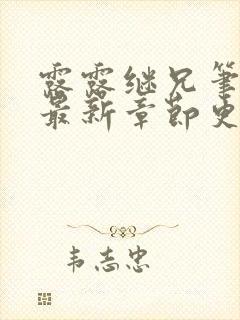 露露继兄笔
最新章节史
韦志忠